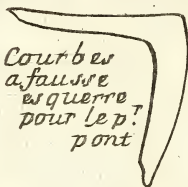 Courbes
a fausse
esquerre
pour le p.r
pont